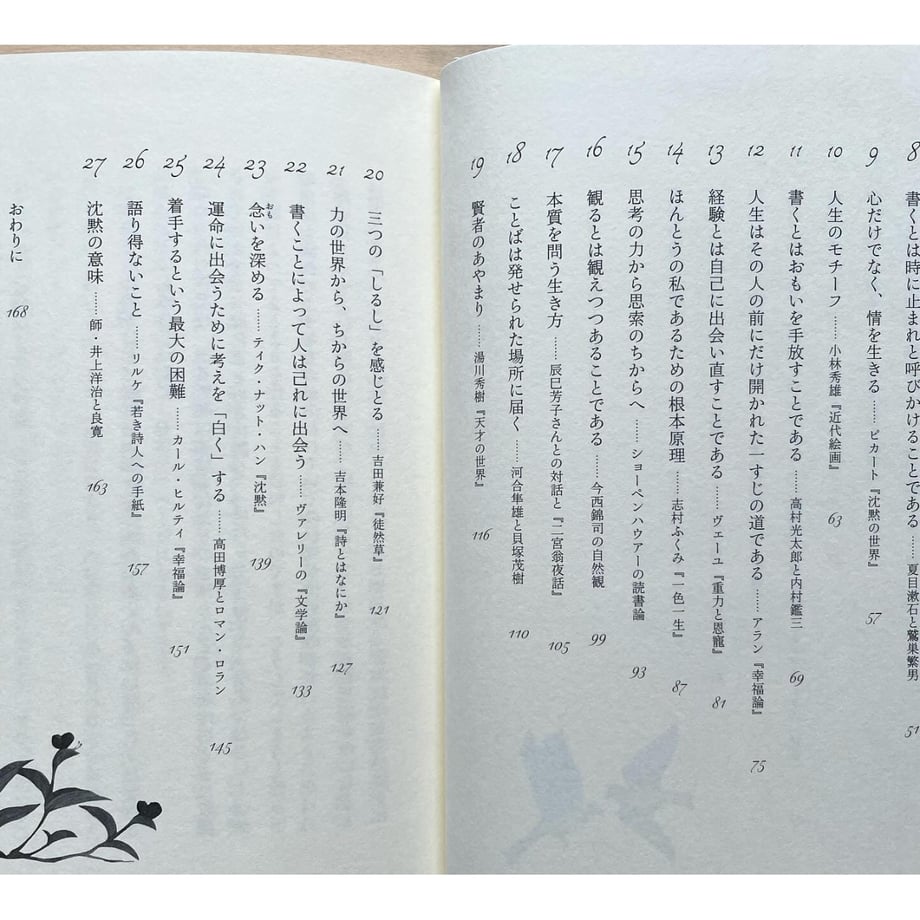 8 書くとは時に止まれと呼びかけることである……夏目漱石と鷲巣繁男 51
9 心だけでなく、情を生きる……ピカート『沈黙の世界』 57
10 人生のモチーフ……小林秀雄『近代絵画』 63
11 書くとはおもいを手放すことである……高村光太郎と内村鑑三 69
12 人生はその人の前にだけ開かれた一すじの道である……アラン『幸福論』 75
13 経験とは自己に出会い直すことである……ヴェーユ『重力と恩寵』 81
14 ほんとうの私であるための根本原理……志村ふくみ『一色一生』 87
15 思考の力から思索のちからへ……ショーペンハウアーの読書論 93
16 観るとは観えつつあることである……今西錦司の自然観 99
17 本質を問う生き方……辰巳芳子さんとの対話と『二宮翁夜話』 105
18 ことばは発せられた場所に届く……河合隼雄と貝塚茂樹 110
19 賢者のあやまり……湯川秀樹『天才の世界』 116
20 三つの「しるし」を感じとる……吉田兼好『徒然草』 121
21 力の世界から、ちからの世界へ……吉本隆明『詩とはなにか』 127
22 書くことによって人は己れに出会う……ヴァレリーの『文学論』 133
23 念いを深める……ティク・ナット・ハン『沈黙』 139
おも
24 運命に出会うために考えを「白く」する……高田博厚とロマン・ロラン 145
25 着手するという最大の困難……カール・ヒルティ『幸福論』 151
26 語り得ないこと……リルケ『若き詩人への手紙』 157
27 沈黙の意味……師・井上洋治と良寛 163
おわりに 168